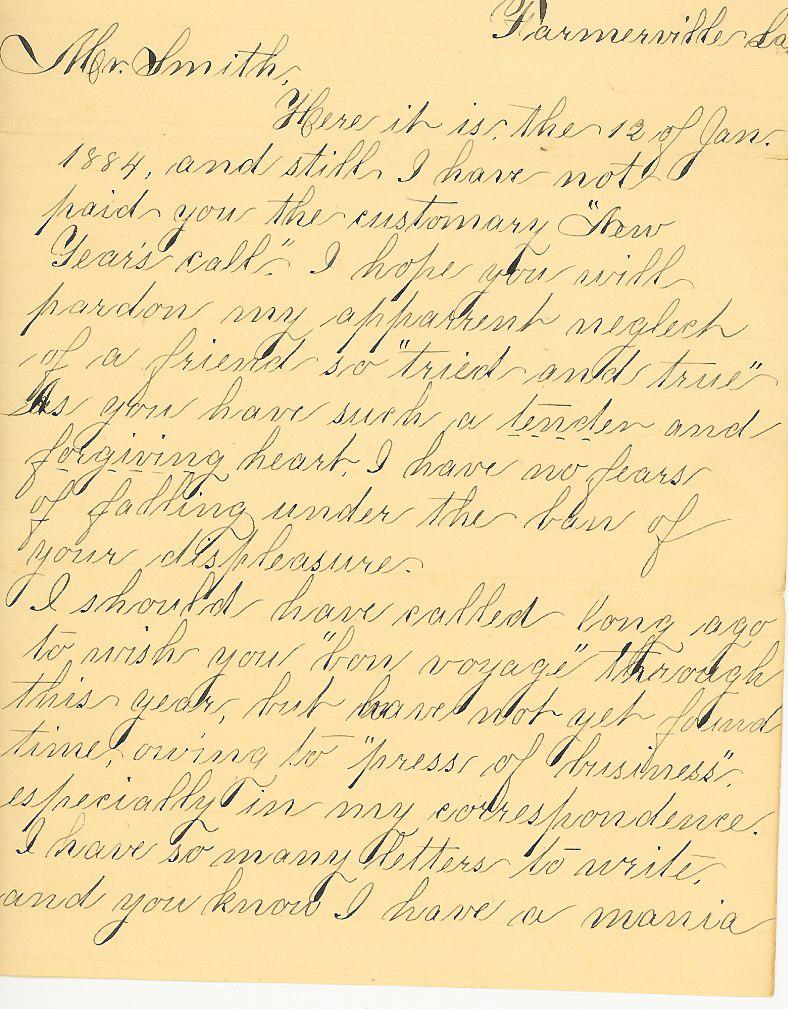 Farmerville La
Mr. Smith,
Here it is, the 12 of Jan.
1884, and still I have not
paid you the customary "New
Year's call." I hope you will
pardon my apparent neglect
of a friend so "tried and true"
As you have such a tender and
forgiving heart, I have no fears
of falling under the ban of
your displeasure.
I should have called long ago
to wish you "bon voyage" through
this year, but have not yet found
time, owing to "press of business",
especially in my correspondence.
I have so many letters to write,
and you know I have a mania